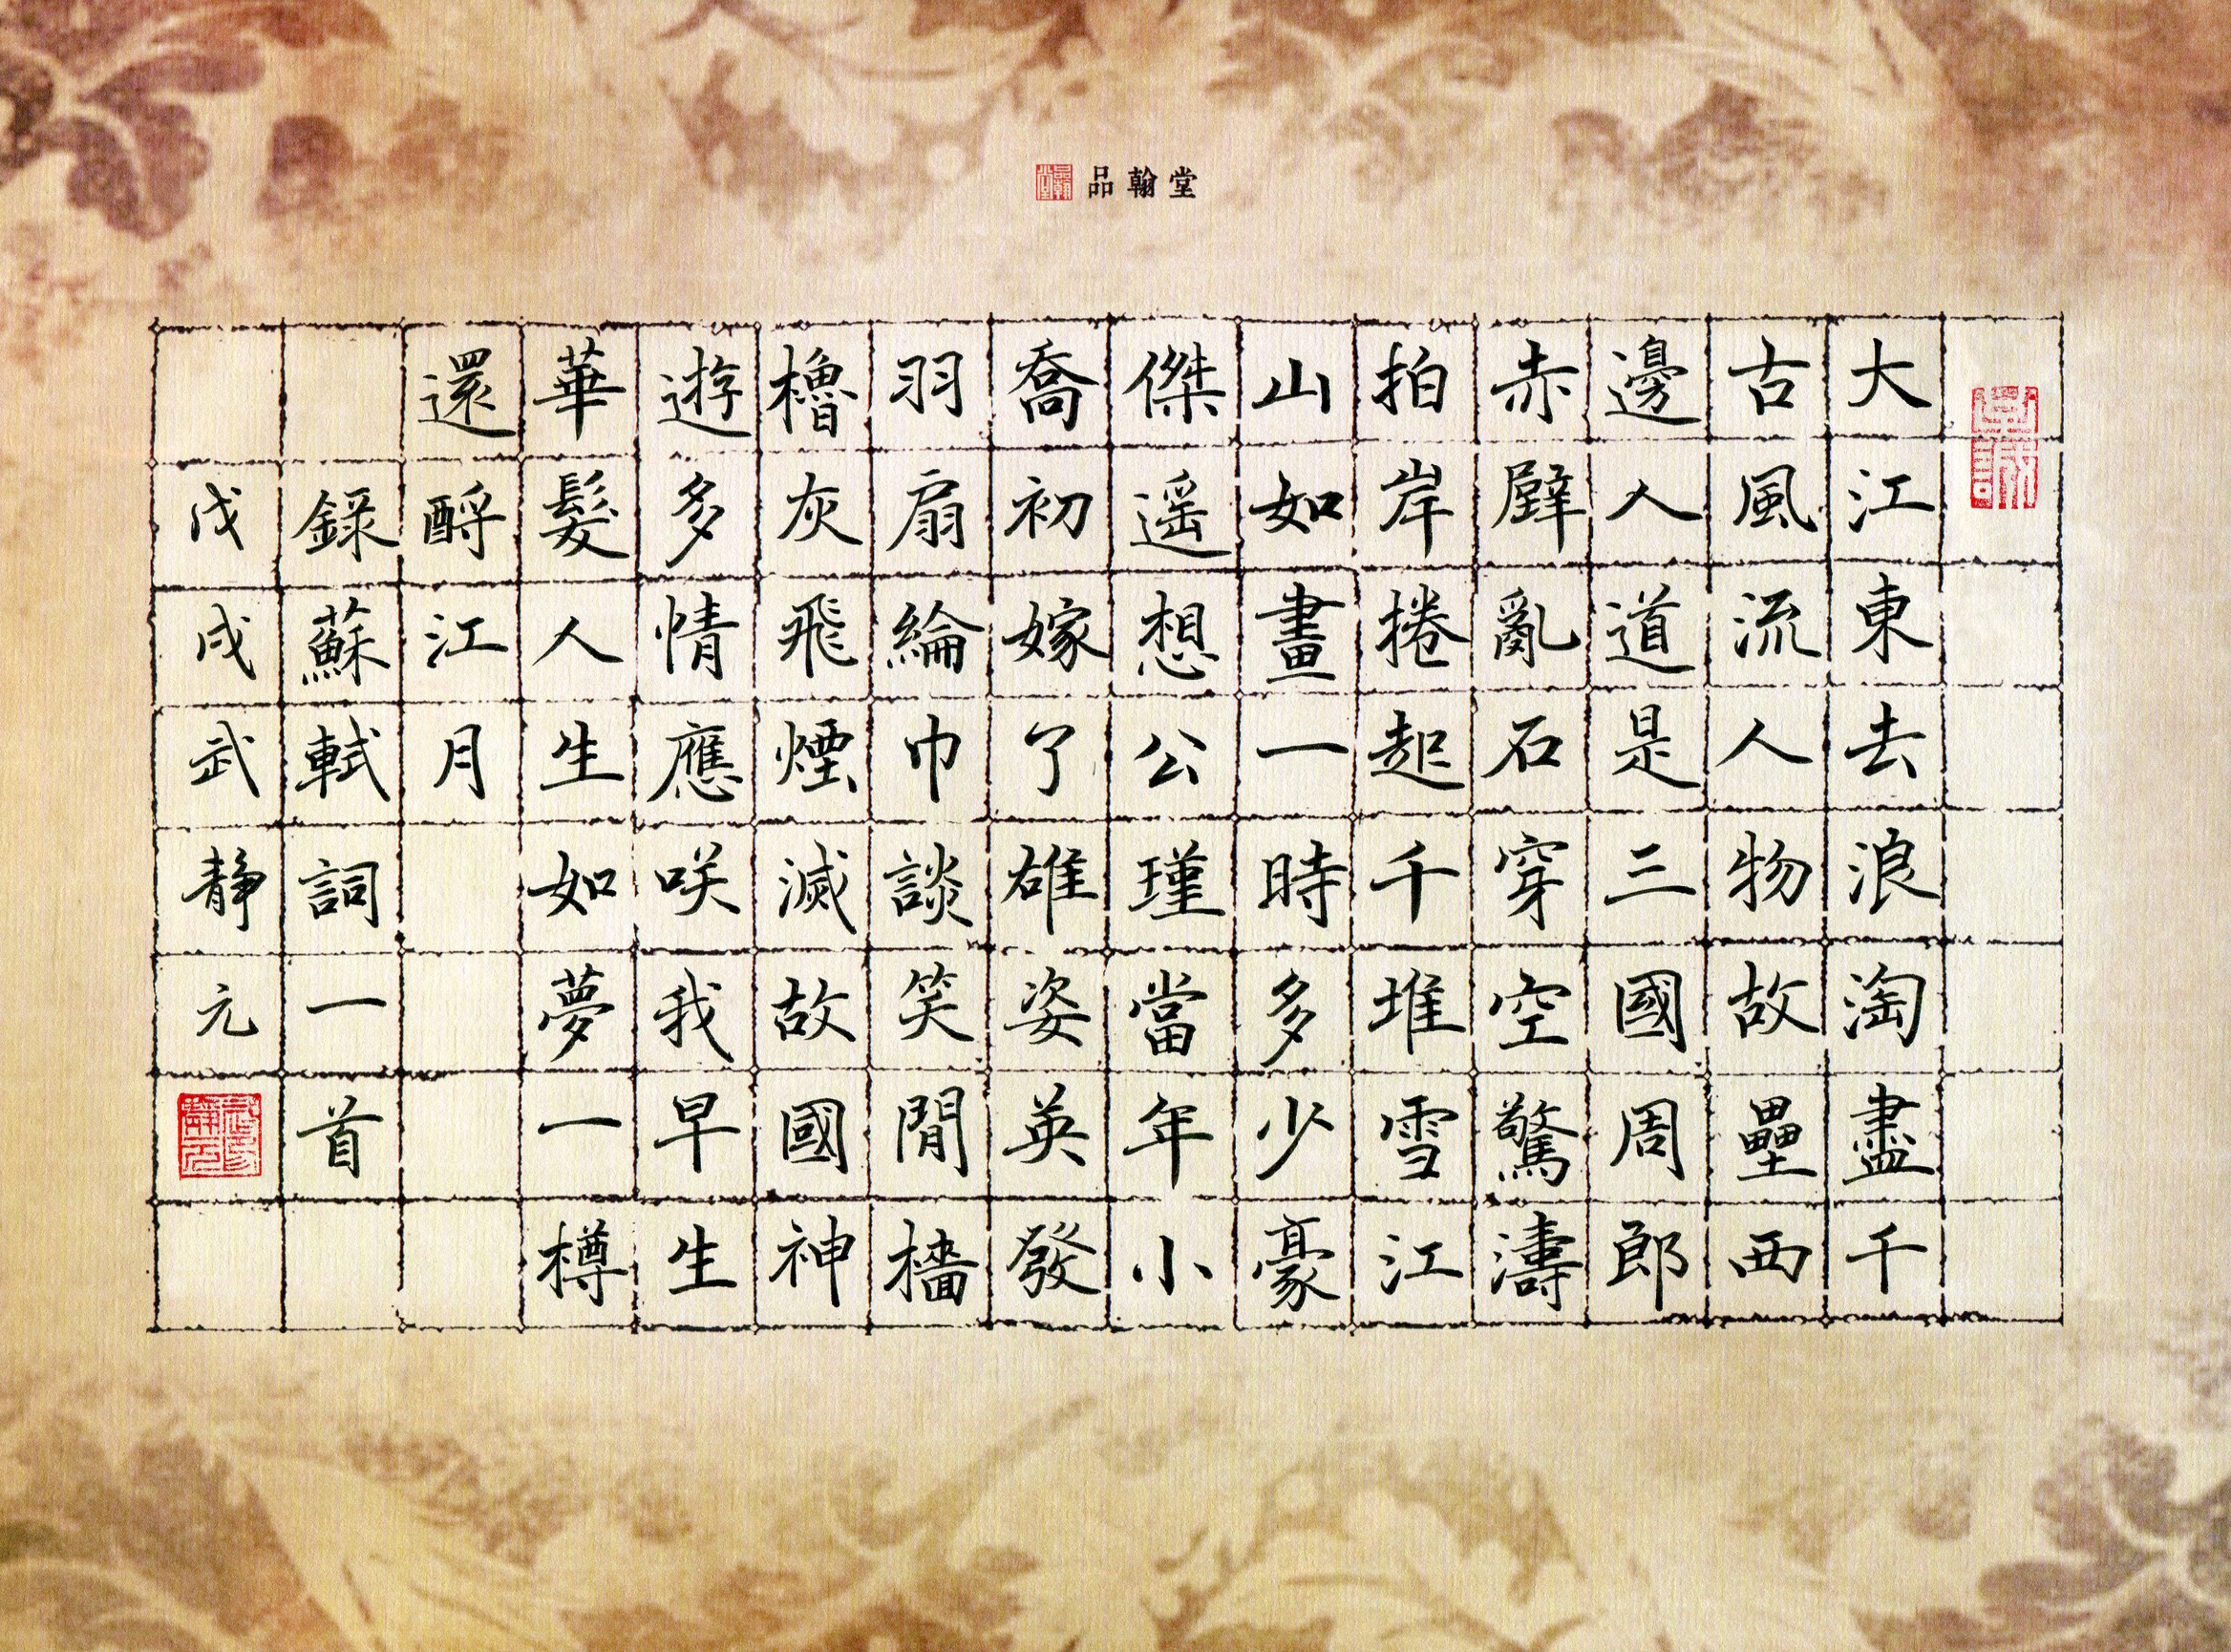 品翰堂
大江東去浪淘盡千
古風流人物故壘西
邊人道是三國周郎
赤壁亂石穿空驚濤
拍岸捲起千堆雪江
山如畫一時多少豪
傑遥想公瑾當年小
喬初嫁了雄姿英發
羽扇綸巾談笑閒檣
櫓灰飛煙滅故國神
遊多情應咲我早生
華髮人生如夢一樽
還酹江月
錄蘇軾詞一首
戊戌武静元